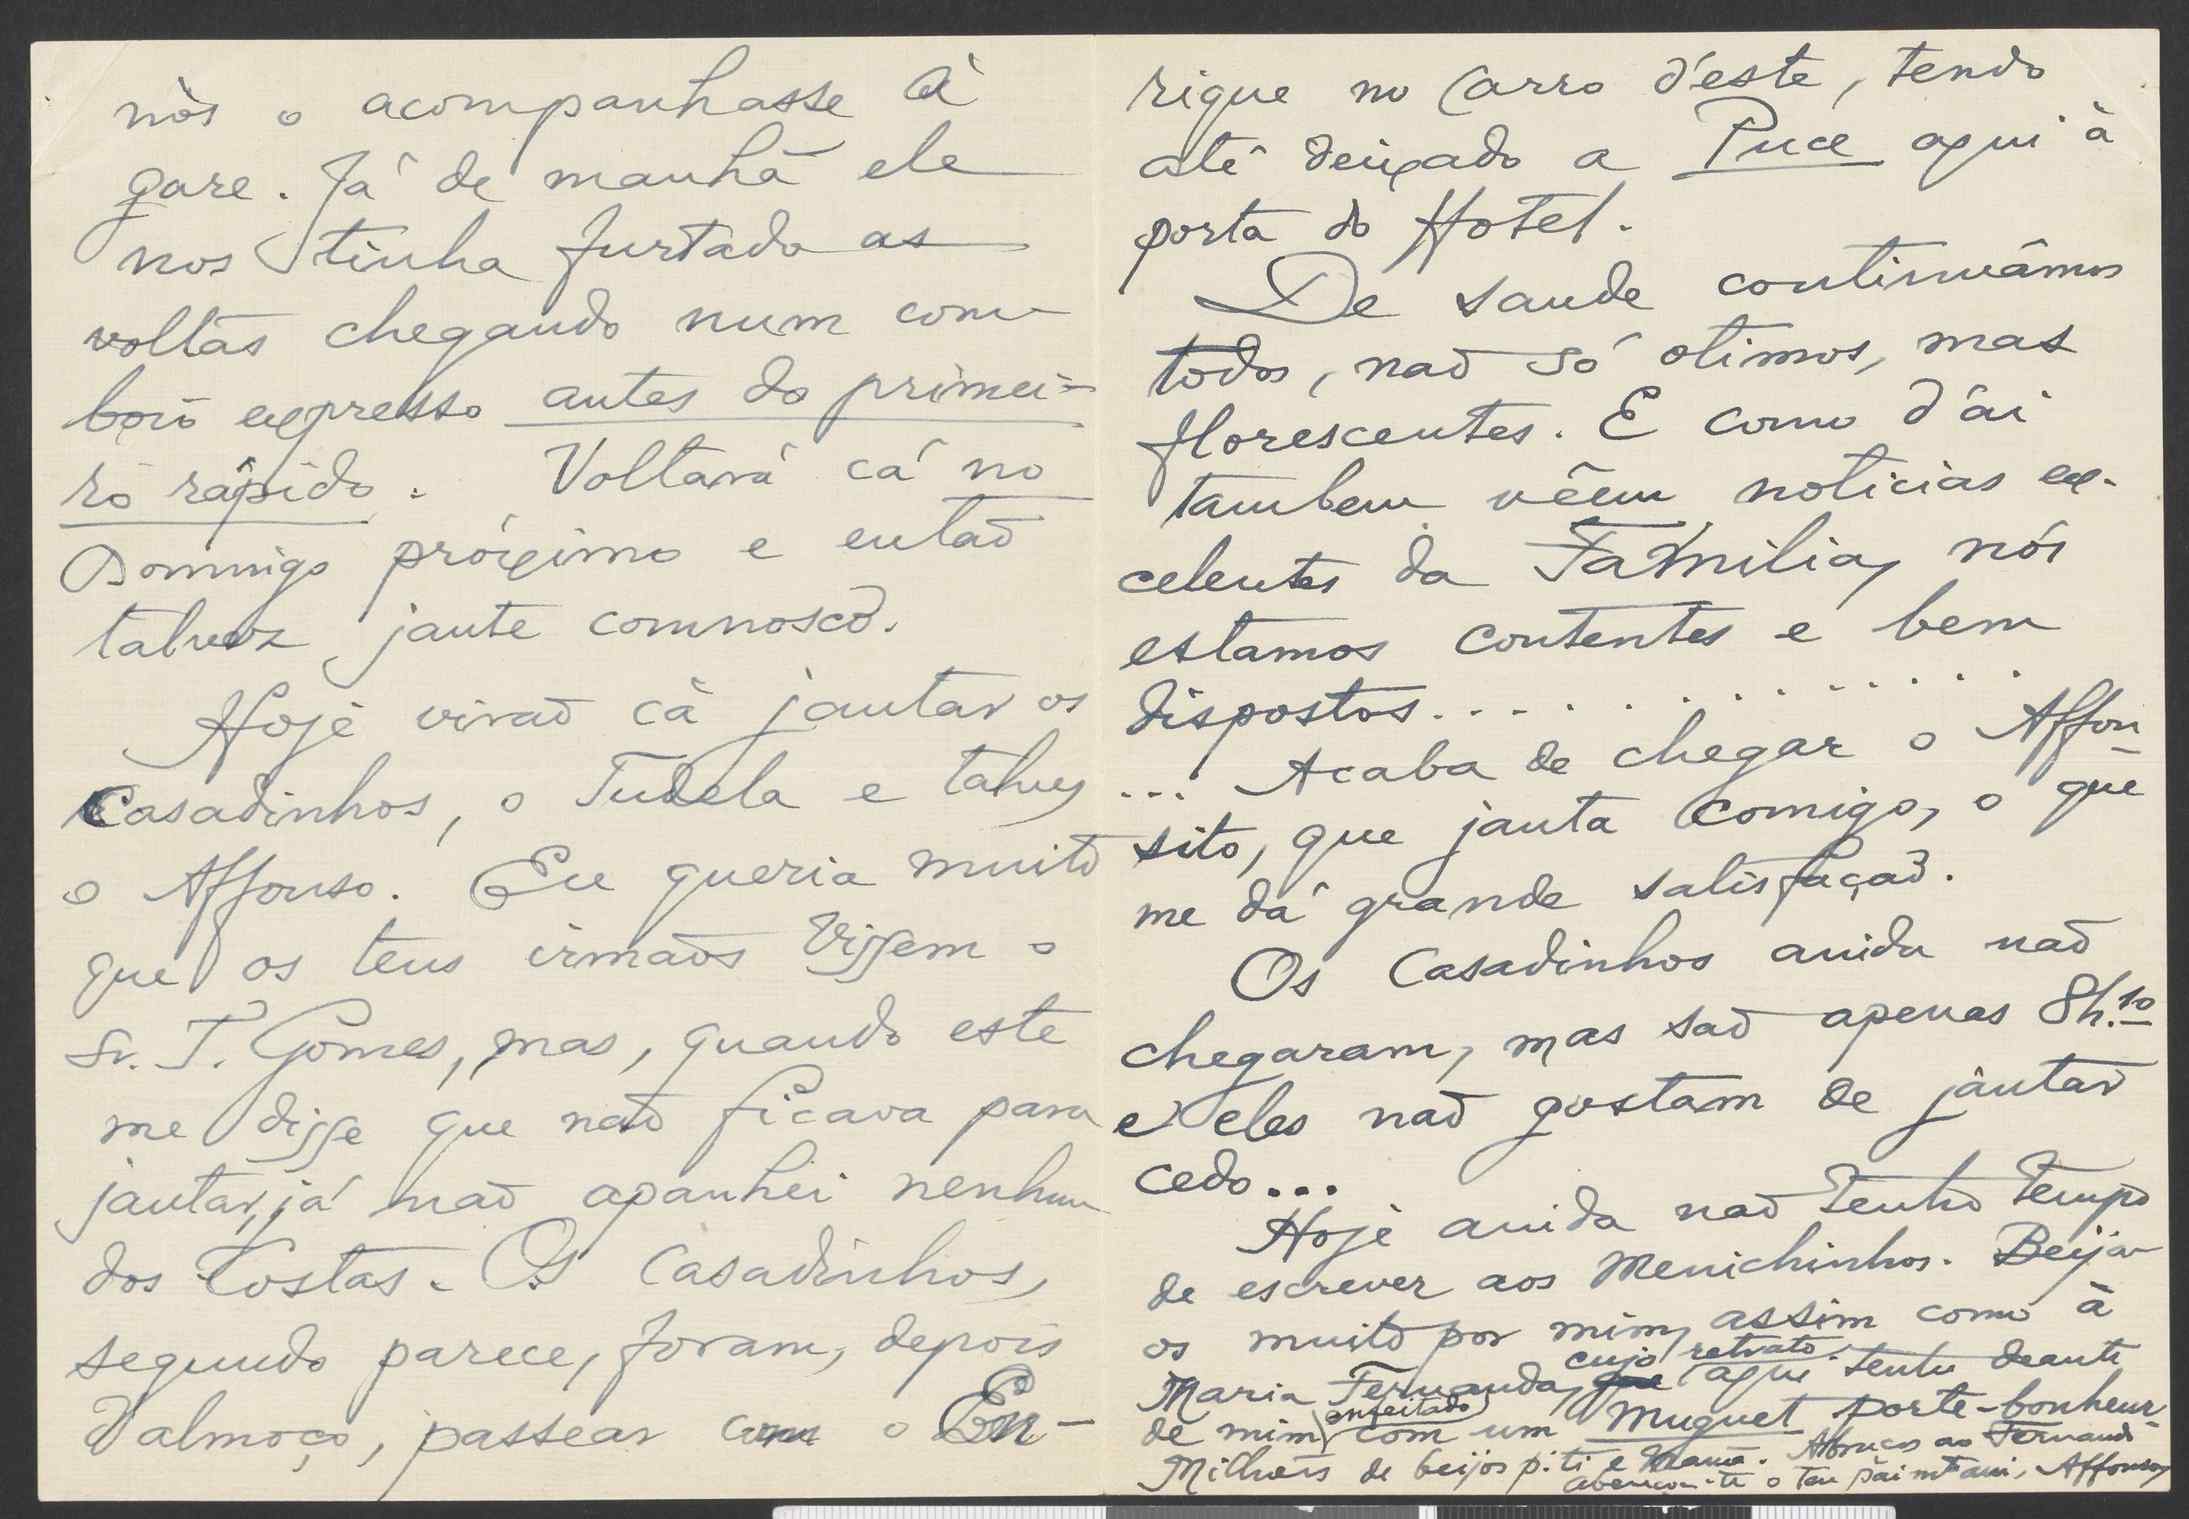 nós o acompanhasse à
gare. Já de manhã ele
nos tinha furtado as
voltas chegando num com-
boio expresso antes do primei-
ro rápido. Voltará cá no
Domingo próximo e então
talvez jante comnosco.
Hoje virão cá jantar os
Casadinhos, o Tudela e talvez
o Affonso. Eu queria muito
que os teus irmãos vissem o
Sr. T. Gomes, mas, quando este
me disse que não ficava para
jantar, já não apanhei nenhum
dos Costas. Os Casadinhos,
segundo parece, foram, depois
d'almoço, passear com o En-
rique no carro d'este, tendo
até deixado a Puce aqui à
porta do Hotel.
De saude continuâmos
todos, não só otimos, mas
florescentes. E como d'ái
tambem vêem noticias ex-
celentes da Familia, nós
estamos contentes e bem
dispostos. . . . . . . . . . . .
... Acaba de chegar o Affon-
sito, que janta comigo, o que
me dá grande satisfação.
Os Casadinhos ainda não
chegaram, mas são apenas 8h.10
e eles não gostam de jantar
cedo...
Hoje ainda não tenho tempo
de escrever aos Menichinhos. Beija-
os muito por mim, assim como à
Maria Fernanda, cujo retrato aqui tenho deante
de mim enfeitado com um Muguet porte-bonheur
Milhões de beijos p. ti e Mamã. Abraços ao Fernando
abençoa-te o teu pai mt.º ami. Affonso